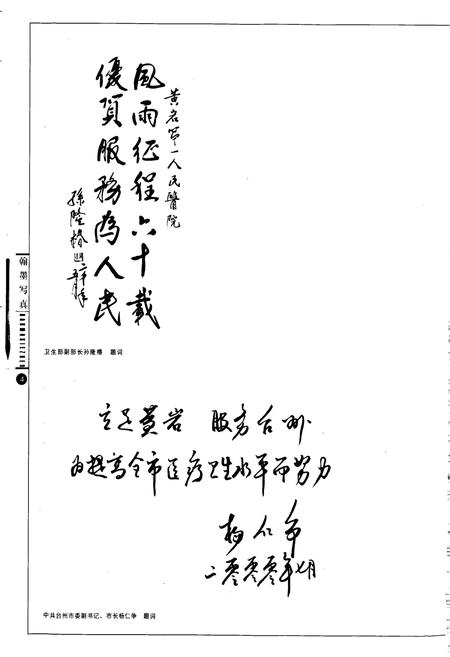 黄岩第一人民醫院
風雨征程六十載
優質服務為人民
孫隆椿
卫生部副部长孙隆椿 题词
翰墨写真
4
立足黄岩 服务台州
为提高全市医疗卫生水平而努力
杨仁争
二零零零年七月
中共台州市委副书记、市长杨仁争 题词